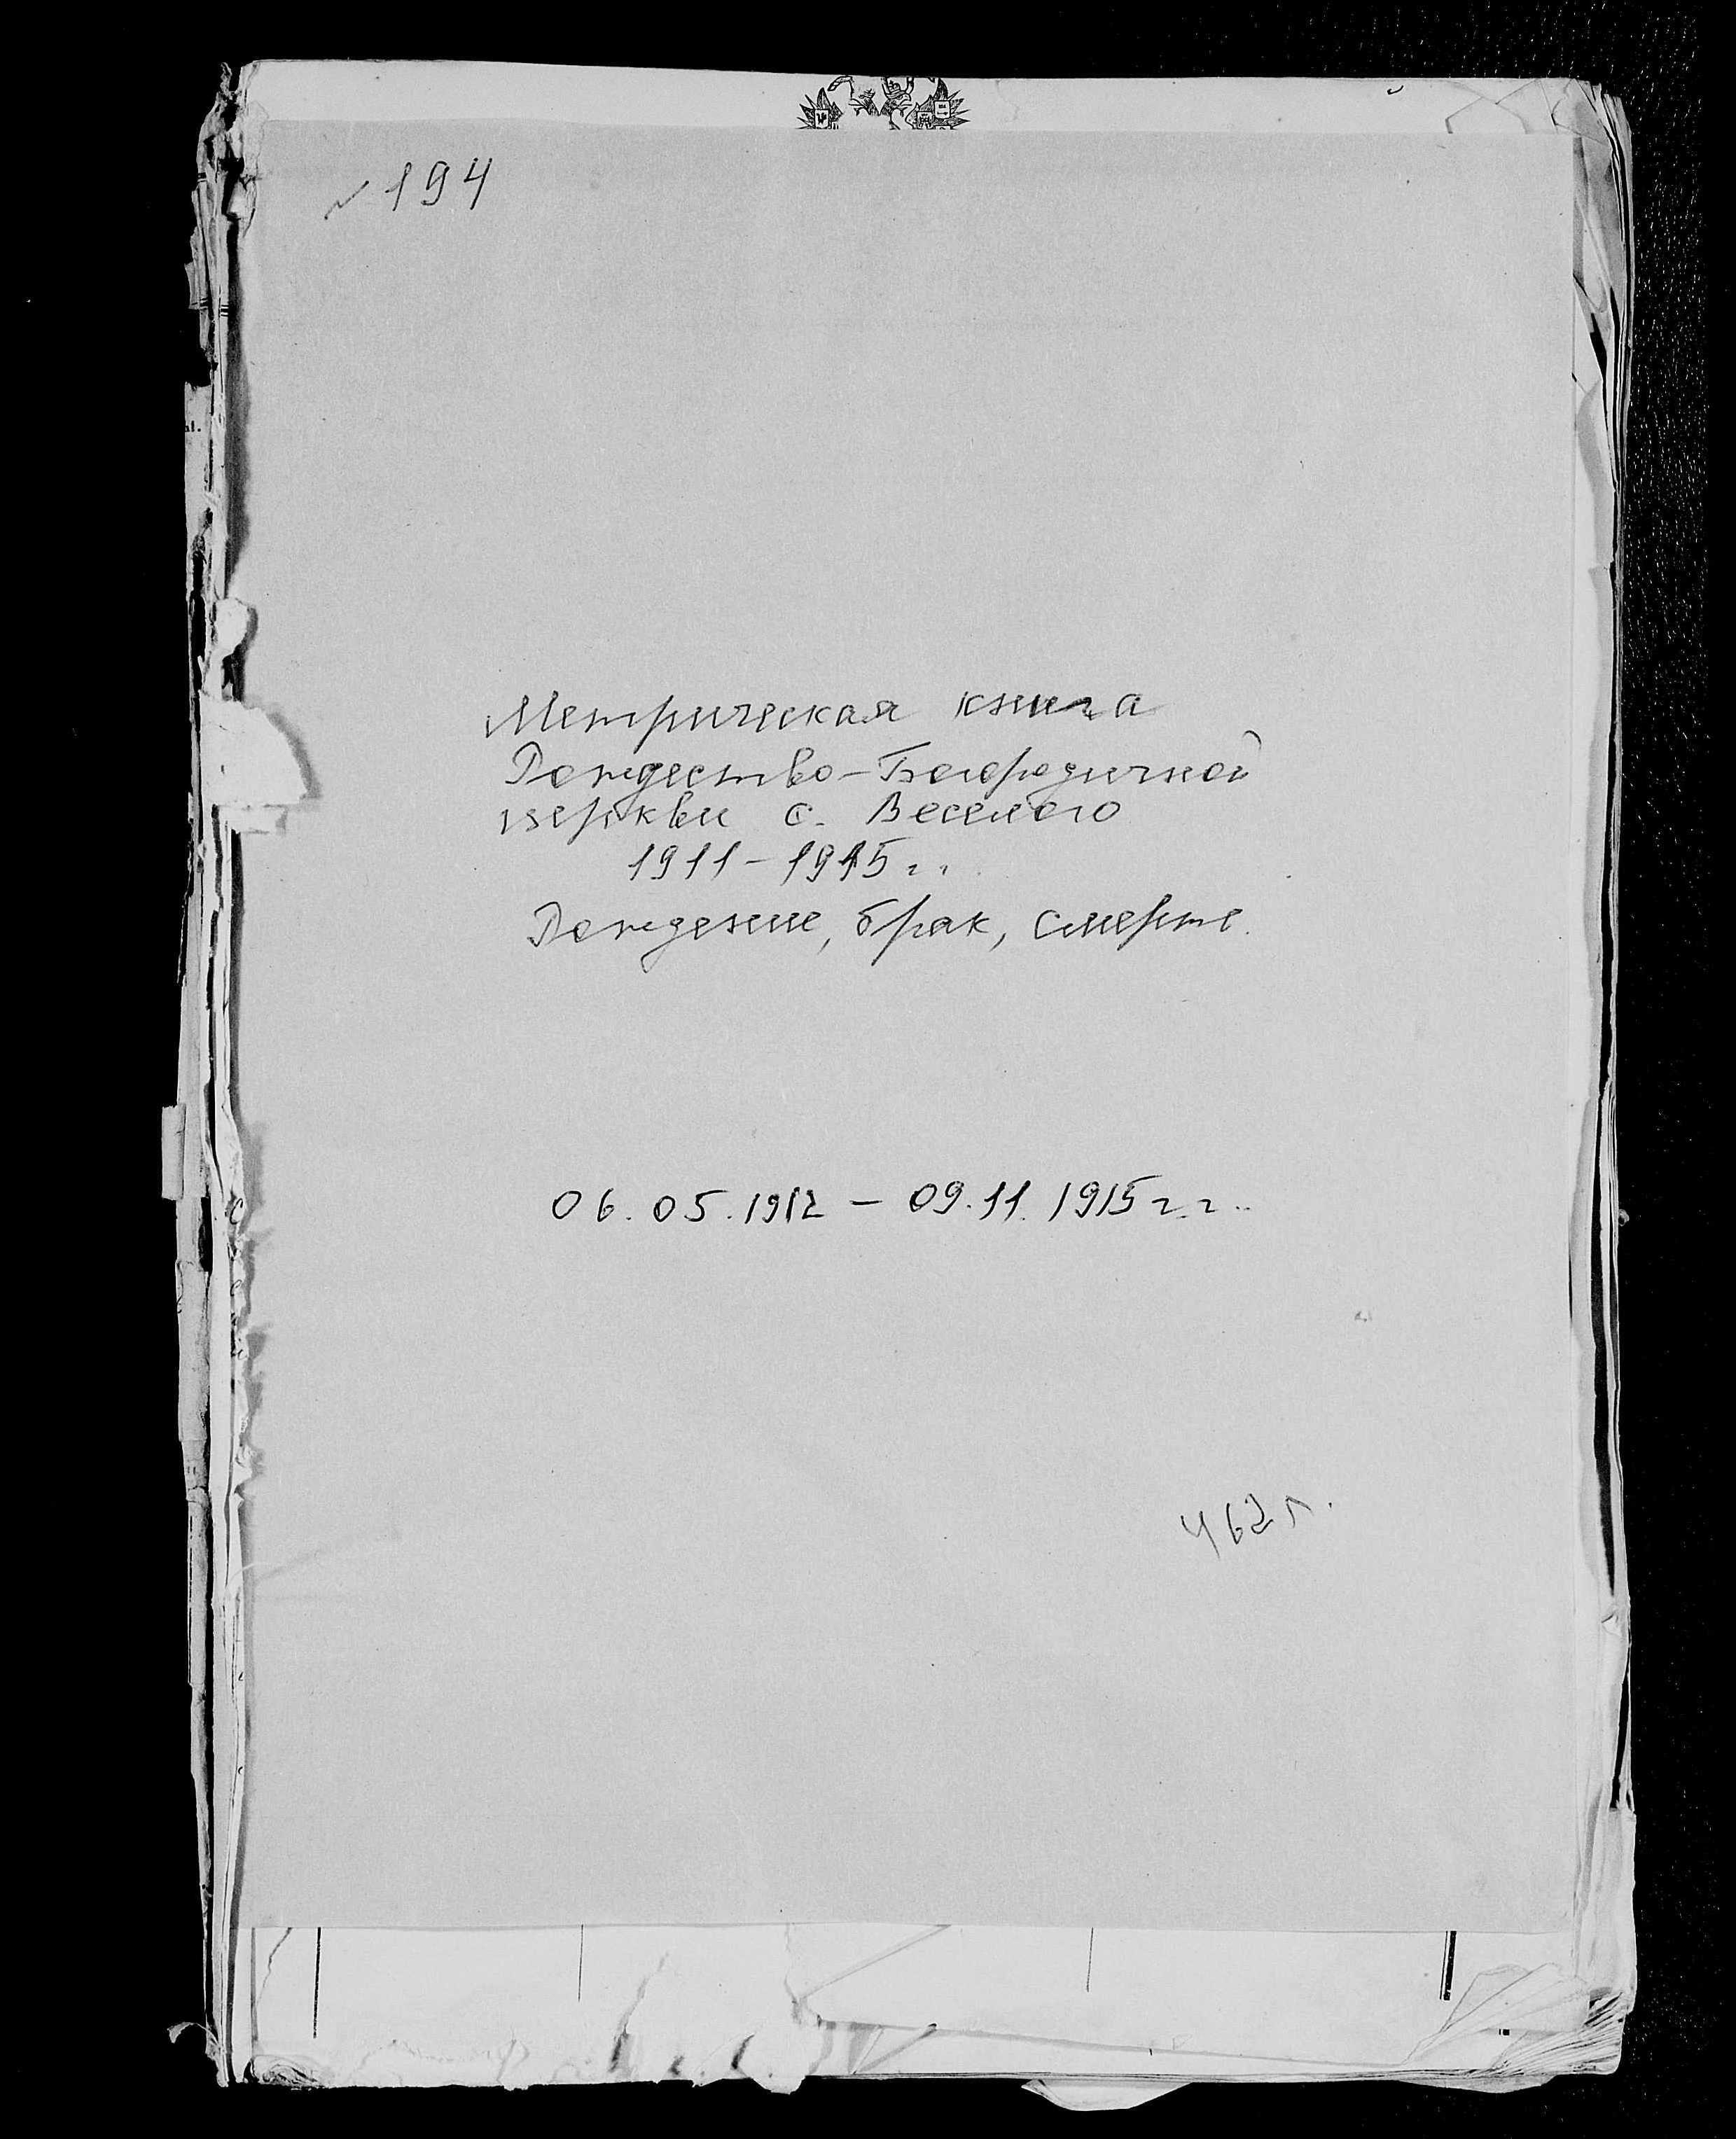 194
Метрическая книга
Рождество-Богородичной
церкви с. Веселого
1911-1915 г.г.
Рождение, брак, смерть.
06.05.1912 - 09.11.1915 г.г.
462 л.